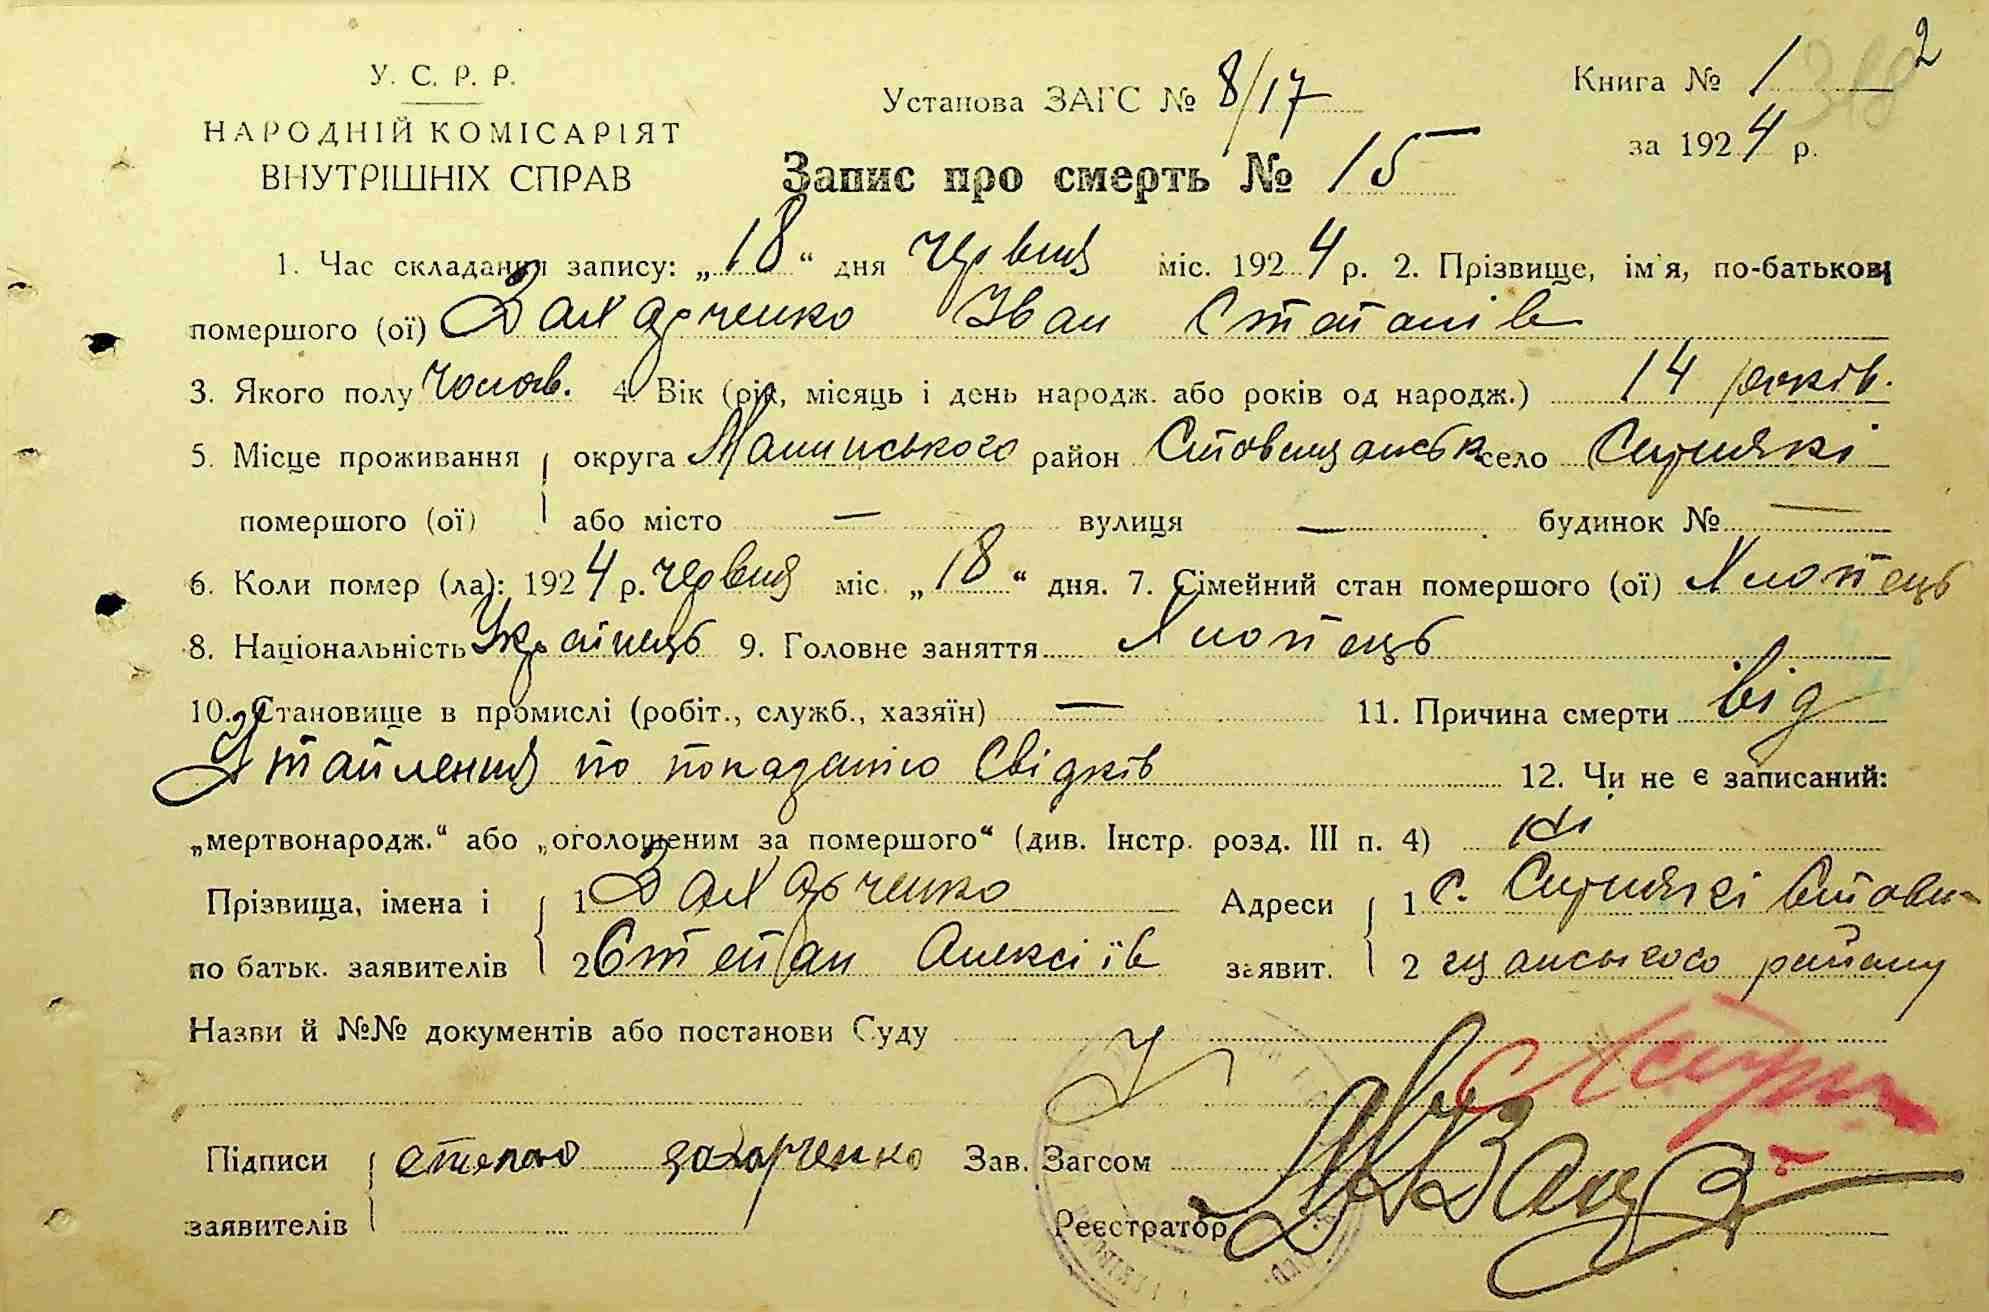 2
У. С. Р. Р.
НАРОДНІЙ КОМІСАРІЯТ
ВНУТРІШНІХ СПРАВ
Установа ЗАГС № 8/17
Книга № 1
318
за 1924 р.
Запис про смерть № 15
1. Час складання запису: „18“ дня червня міс. 1924 р. 2. Прізвище, ім'я, по-батькові
помершого (ої) Захарченко Іван Степанів
3. Якого полу чолов. 4. Вік (рік, місяць і день народж. або років од народж.) 14 років.
5. Місце проживання округа Малинського район Ставищанськ село
помершого (ої) або місто — вулиця — будинок № —
6. Коли помер (ла): 1924 р. червня міс. „18“ дня. 7. Сімейний стан помершого (ої) Хлопець
8. Національність Українець 9. Головне заняття Хлопець
10. Становище в промислі (робіт., служб., хазяїн) — 11. Причина смерти від
утоплення по показанію свідків 12. Чи не є записаний:
„мертвонародж.“ або „оголошеним за помершого“ (див. Інстр. розд. III п. 4) ні
Прізвища, імена і 1 Захарченко Адреси 1 с. Стави-
по батьк. заявителів 2 Степан Алексіїв заявит. 2 щанського району
Назви й №№ документів або постанови Суду
Підписи степан захарченко Зав. Загсом
заявителів Реєстратор